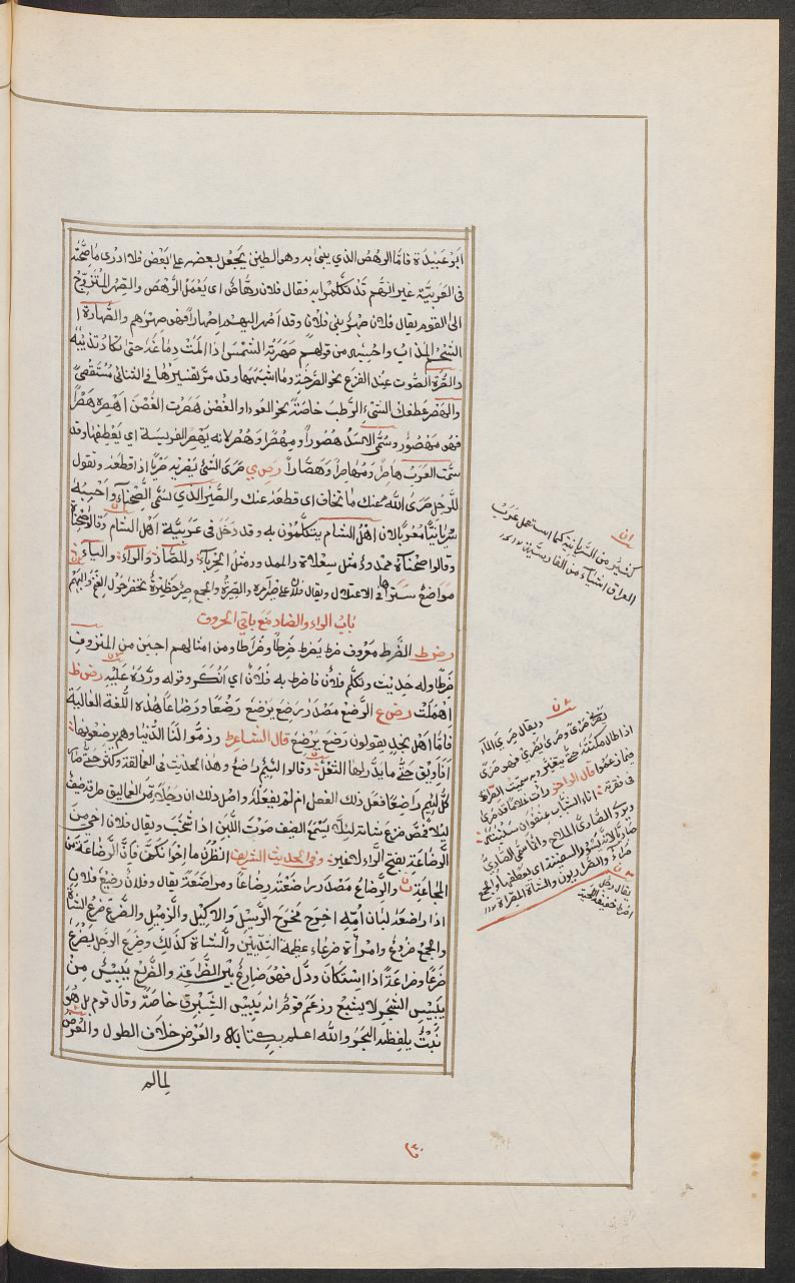 أبو عبيدة فأما الوهص الذي يبنى به وهو الطين يجعل بعضه على بعض فلا ادرى ما صحته
فى العربية غير انهم قد تكلموا به فقال فلان رهاص اى يعمل الرهص والصهر المتزوج
الى القوم يقال فلان صهر بني فلان وقد أصهر اليهم إصهاراً فهو صهرهم والصهارة
الشحم المذاب واحسبه من قولهم صهرته الشمس اذا المت دماغه حتى تكاد تذيبه
والصرة الصوت عند الفزع نحو الصرخة وما اشبهها وقد مر تفسيرها في الثنائي مستقصى
والهصر عطفك الشيء الرطب خاصة نحو العود او الغصن هصرت الغصن اهصره هصراً
فهو مهصور وسمى الاسد هصوراً ومهصراً وهصر لانه يهصر الفريسة اى يعطفها وقد
سمت العرب هاصراً ومهاصراً وهصاراً رص ي صرى الشئ يصريه صرياً اذا قطعه وتقول
للرجل صرى الله عنك ما تخاف اى قطعه عنك والصير الذي يسمى الصحناء واحسبه
سريانياً معرباً لان اهل الشام يتكلمون به وقد دخل فى عربية اهل الشام
وقالوا صحناة ممدود مثل سعلاة والممد ودمثل الحرباء وللصاد والراء والياء
مواضع ستراها فى الاعتلال ويقال فلان على صير امره والصيرة والجمع صير حظيرة تحفر حول الغنم والبهم
باب الراء والضاد مع باقي الحروف
رض ط الضرط معروف ضرط يضرط ضرطاً وضراطاً ومن امثالهم اجبن من المنزوف
ضرطاً وله حديث وتكلم فلان فاضرط به فلان اي انكر قوله وردّه عليه رض ظ
اهملت رض ع الرضع مصدر رضع يرضع رضعاً ورضاعاً هذه اللغة العالية
فاما اهل نجد فيقولون رضع يرضع قال الشاعر وذموا لنا الدنيا وهم يرضعونها
افاويق حتى ما يدر لها الثعل وقالوا لئيم راضع وهذا الحديث فى العمالقة وكثر حتى صار
كل لئيم راضعاً فعل ذلك الفعل ام لم يفعله واصل ذلك ان رجلاً من العماليق طرقه ضيف
ليلا فمص ضرع شاته لئلا يسمع الضيف صوت اللبن اذا شخب ويقال فلان اخى من
الرضاعة بفتح الراء لا غير وفى الحديث الشريف انظرن ما إخوانكن فان الرضاعة من
المجاعة والرضاع مصدر راضعته رضاعاً ومراضعة يقال وفلان رضيع فلان
اذا راضعه لبان أمه اخرج مخرج الرسيل والاكيل والزميل والضرع ضرع الشاة
والجمع ضروع وامرأة ضرعاء عظيمة الثديين والشاة كذلك وضرع الرجل يضرع
ضرعاً وضراعةً اذا استكان وذل فهو ضارع بيّن الضراعة والضريع يبيس من
يبيس الشجر لا يشبع وزعم قوم انه يبيس الشبرق خاصة وقال قوم بل هو
نبت يلفظه البحر والله اعلم بكتابه والعرض خلاف الطول والعرض
لمالم
ان
كثير من السريانية كما استعمل عرب
العراق اشياء من الفارسية
ويقال صرى الماء
اذا طال مكثه حتى يتغير وبه سميت المصراة
قال الراجز رأت غلاماً قد صرى
فى فقرته ماء الشباب عنفوان سنبته
الصارى الملاح
والشاة المصراة
يقال رجل
خفيف اللحية